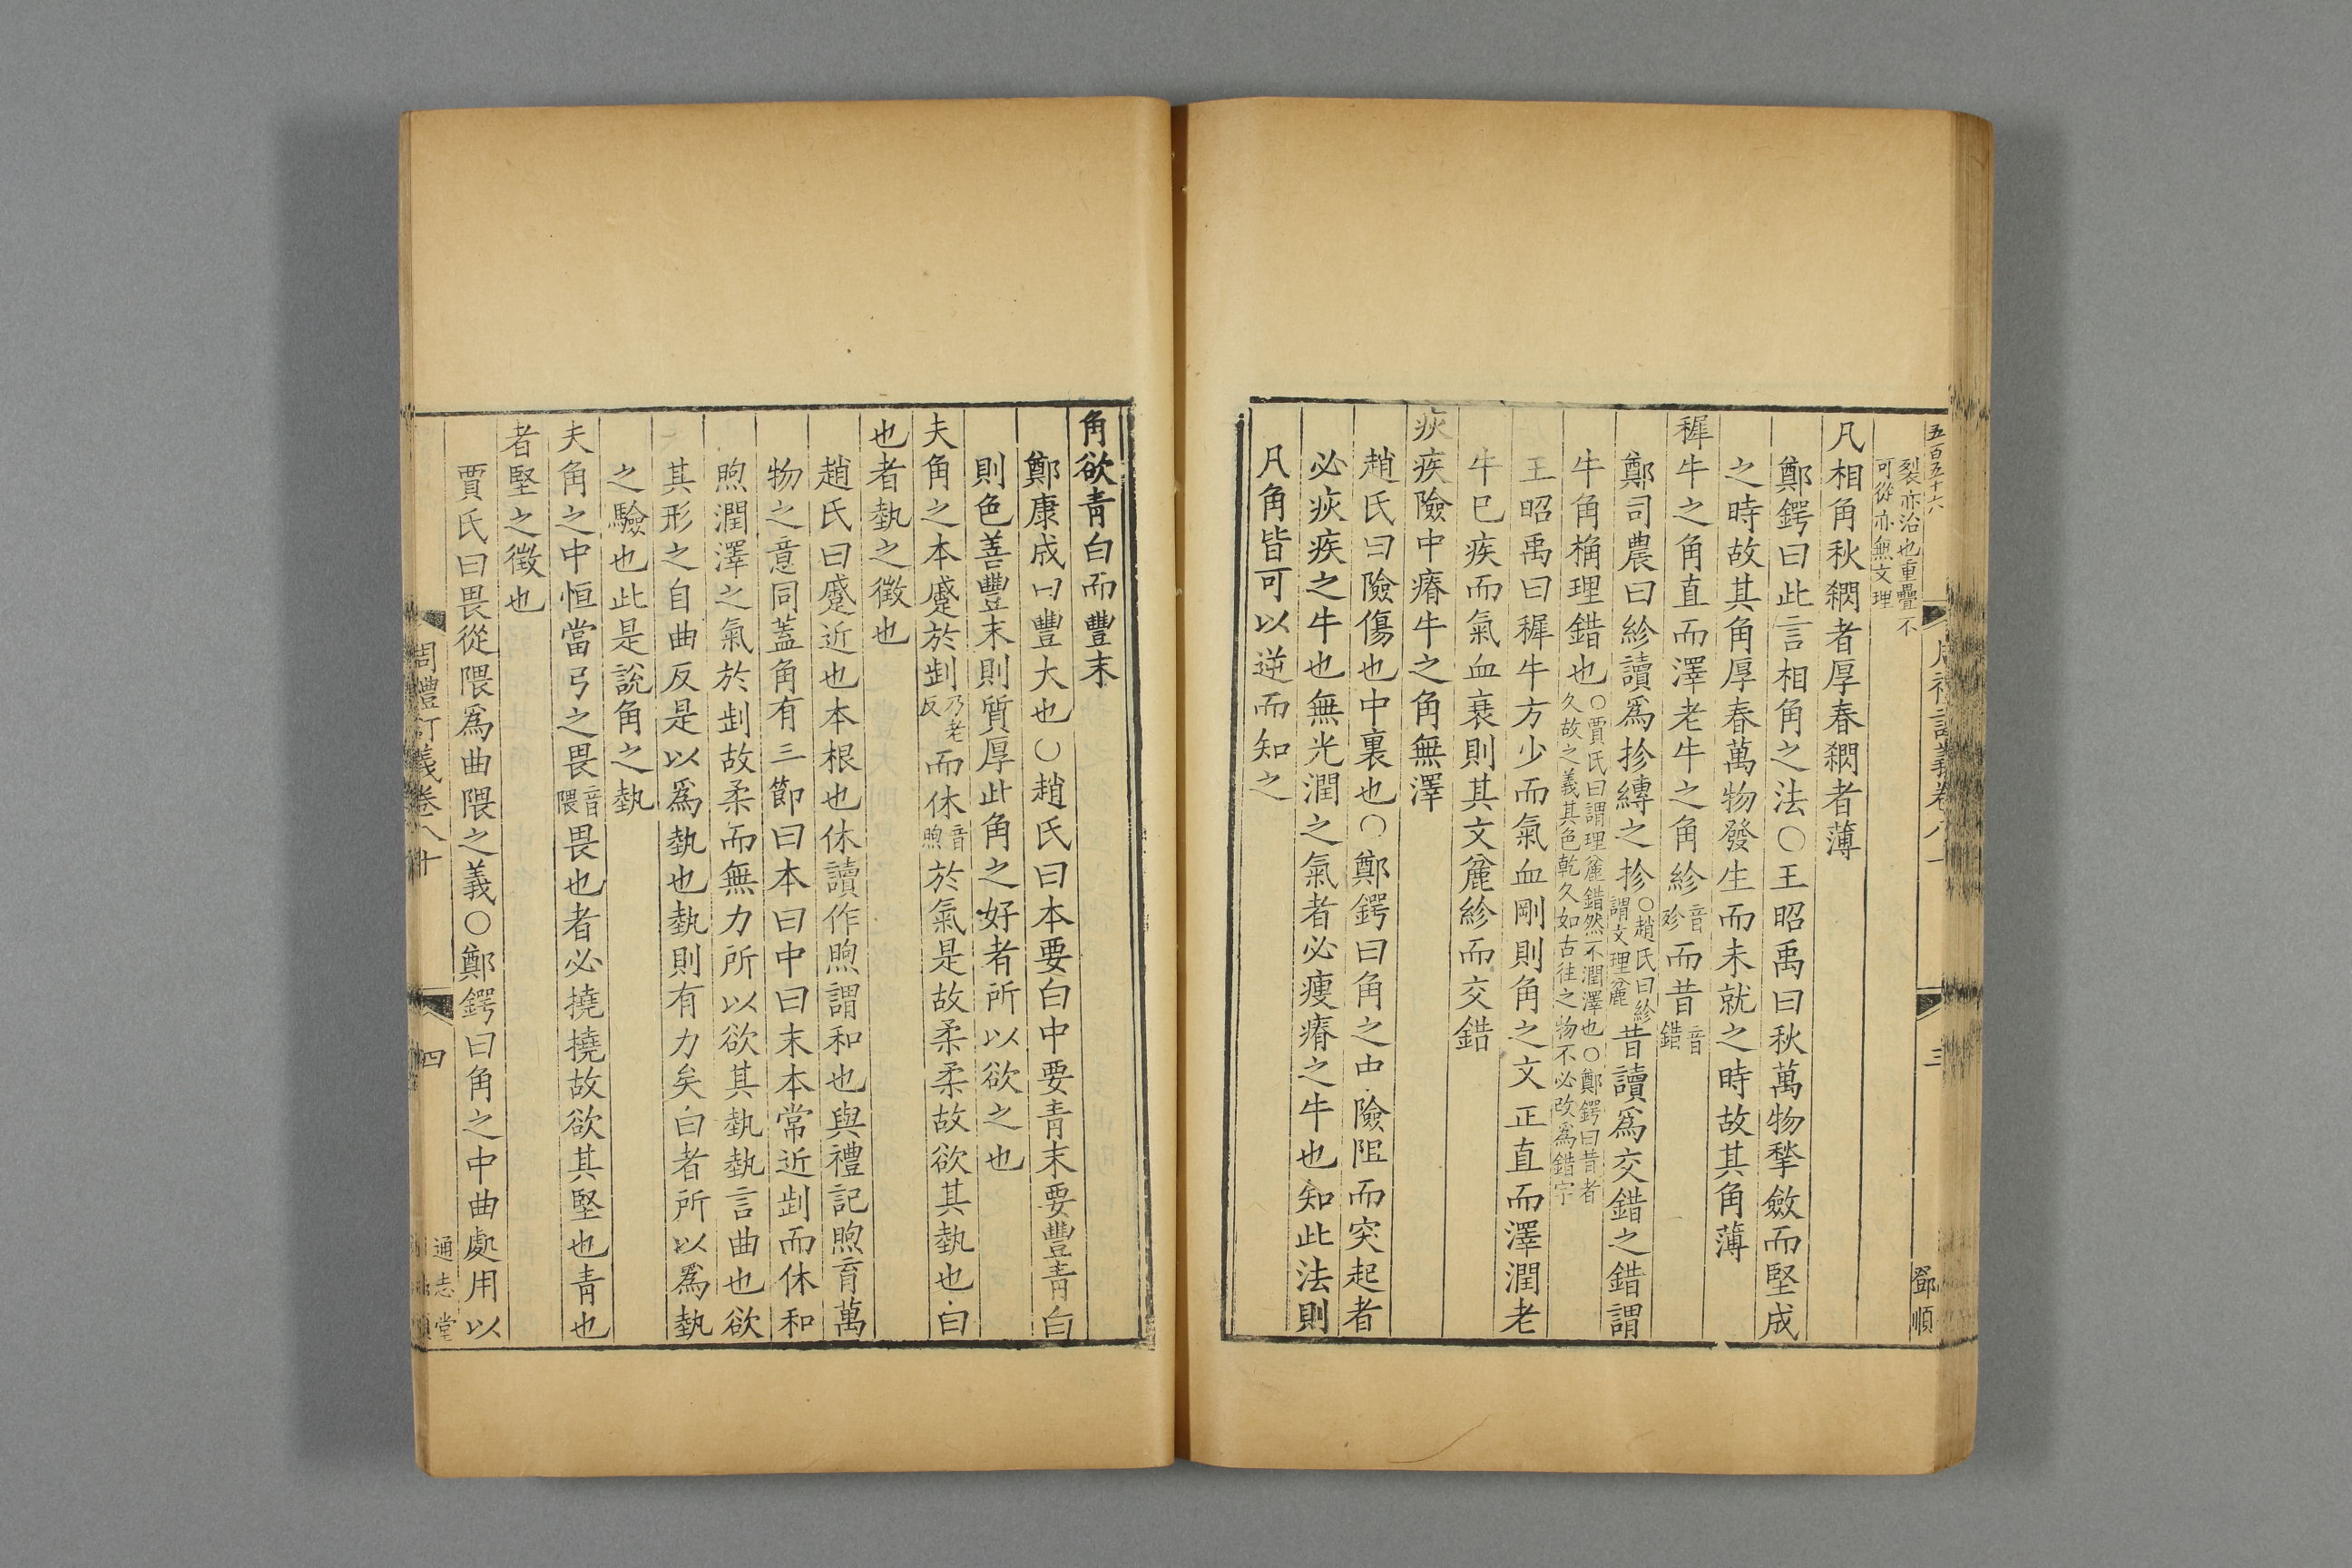 五百五十六
裂亦治也重疊不
可從亦無文理
凡相角秋閷者厚春閷者薄
鄭鍔曰此言相角之法○王昭禹曰秋萬物揫斂而堅成
之時故其角厚春萬物發生而未就之時故其角薄
穉牛之角直而澤老牛之角紾音殄而昔音錯
鄭司農曰紾讀爲抮縳之抮○趙氏曰紾謂文理麄昔讀爲交錯之錯謂
牛角桷理錯也○賈氏曰謂理麄錯然不潤澤也○鄭鍔曰昔者久故之義其色乾久如古往之物不必改爲錯字
王昭禹曰穉牛方少而氣血剛則角之文正直而澤潤老
牛已疾而氣血衰則其文麄紾而交錯
疢疾險中瘠牛之角無澤
趙氏曰險傷也中裏也○鄭鍔曰角之中險阻而突起者
必疢疾之牛也無光潤之氣者必瘦瘠之牛也知此法則
凡角皆可以逆而知之
三
鄧順
角欲青白而豐末
鄭康成曰豐大也○趙氏曰本要白中要青末要豐青白
則色善豐末則質厚此角之好者所以欲之也
夫角之本蹙於𠜶乃老反而休音煦於氣是故柔柔故欲其埶也白
也者埶之徵也
趙氏曰蹙近也本根也休讀作煦謂和也與禮記煦育萬
物之意同蓋角有三節曰本曰中曰末本常近𠜶而休和
煦潤澤之氣於𠜶故柔而無力所以欲其埶埶言曲也欲
其形之自曲反是以爲埶也埶則有力矣白者所以爲埶
之驗也此是說角之埶
夫角之中恒當弓之畏音隈畏也者必撓撓故欲其堅也青也
者堅之徵也
賈氏曰畏從隈爲曲隈之義○鄭鍔曰角之中曲處用以
周禮訂義卷八十
四
通志堂